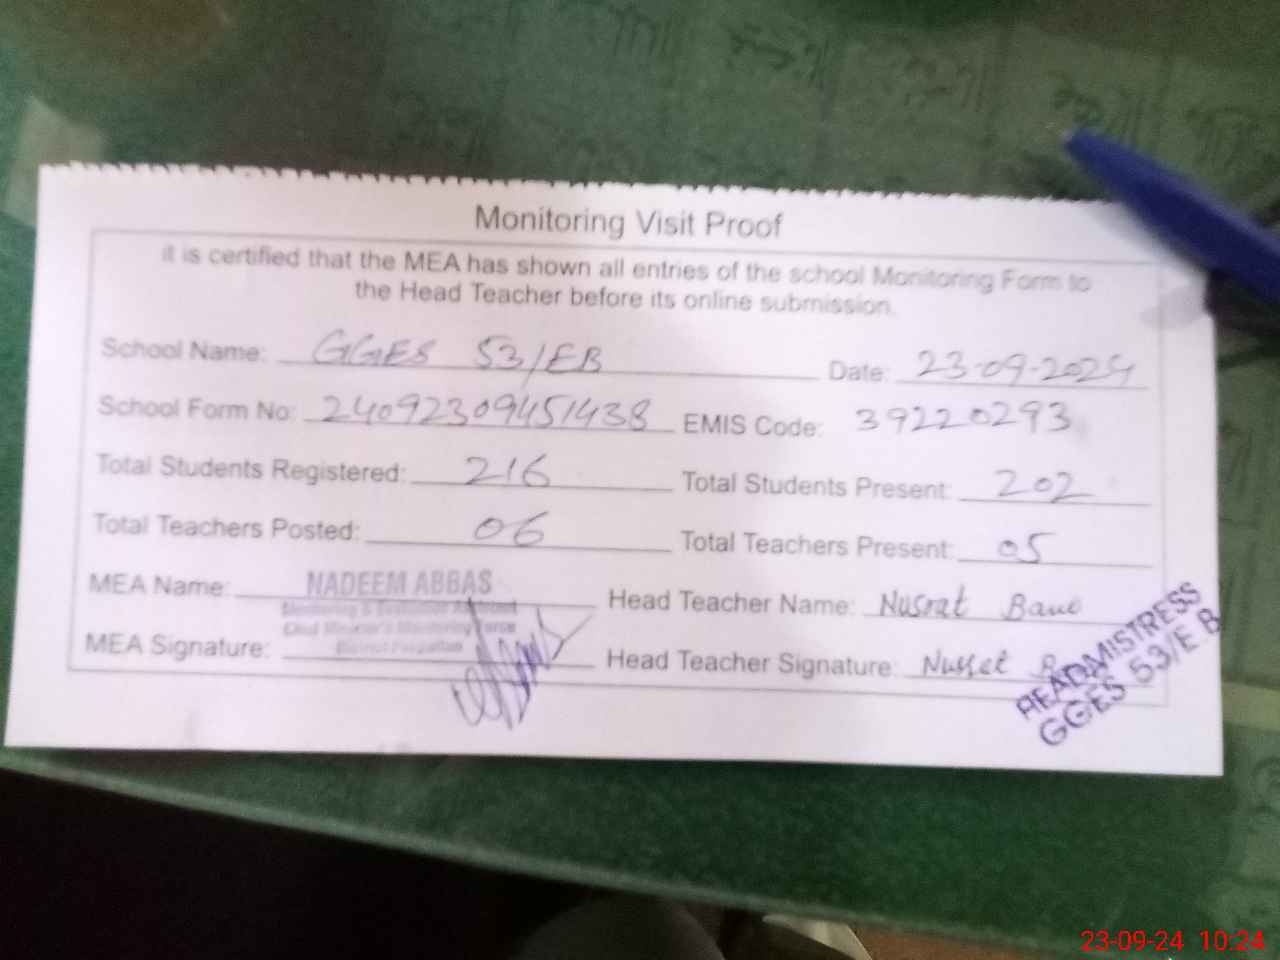 Monitoring Visit Proof
it is certified that the MEA has shown all entries of the school Monitoring Form to
the Head Teacher before its online submission.
School Name: GGES 53/EB Date: 23-09-2024
School Form No: 24092309451438 EMIS Code: 39220293
Total Students Registered: 216 Total Students Present: 202
Total Teachers Posted: 06 Total Teachers Present: 05
MEA Name: NADEEM ABBAS Head Teacher Name: Nusrat Bano
Monitoring & Evaluation Assistant
Chief Minister's Monitoring Force
District Pakpattan
MEA Signature: Head Teacher Signature: Nusrat
HEADMISTRESS
GGES 53/E B
23-09-24 10:24